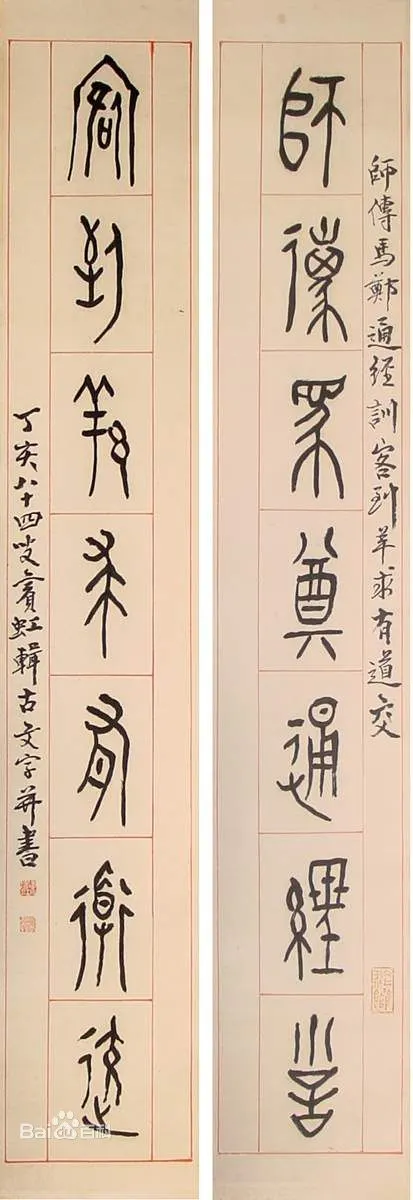 師傳馬鄭通經訓客到羊求有道交
師傳馬鄭通經訓
客到羊求有道交
丁亥八十四叟賓虹輯古文字并書
Bai百科